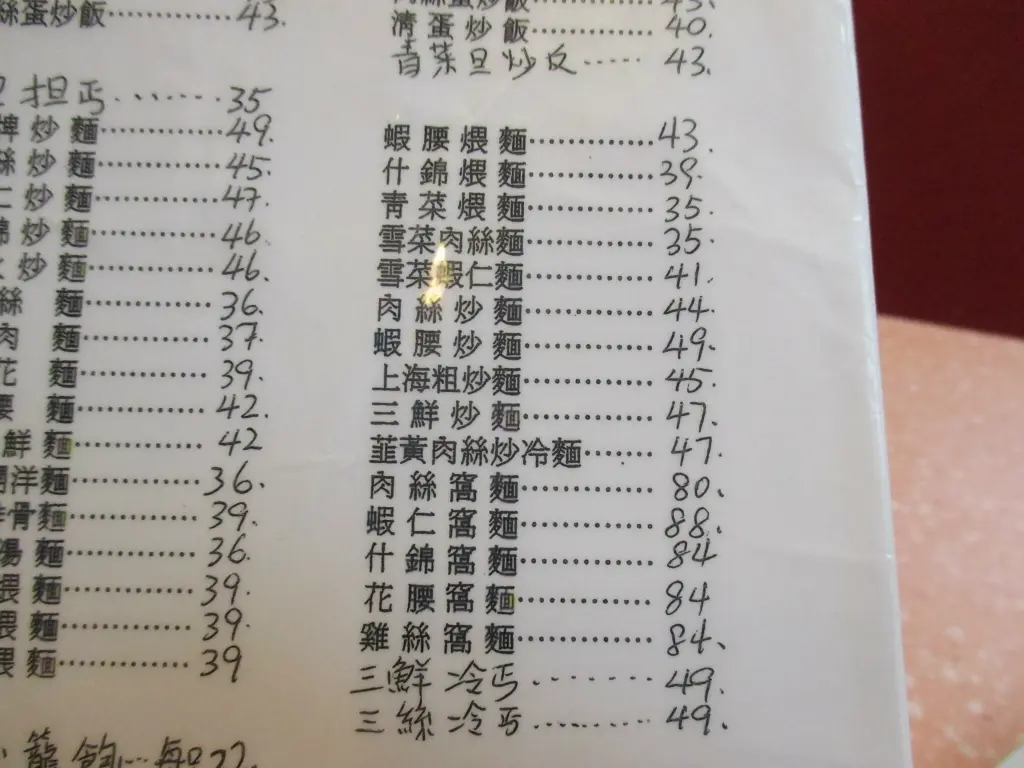 絲蛋炒飯 43.
担丐 35
牌炒麵 49.
絲炒麵 45.
仁炒麵 47.
錦炒麵 46.
炒麵 46.
絲麵 36.
肉麵 37.
花麵 39.
腰麵 42.
鮮麵 42
洋麵 36.
骨麵 39.
湯麵 36.
煨麵 39.
煨麵 39.
煨麵 39
籠 每只22.
肉絲蛋炒飯 45.
清蛋炒飯 40.
青菜旦炒反 43.
蝦腰煨麵 43.
什錦煨麵 39.
青菜煨麵 35.
雪菜肉絲麵 35.
雪菜蝦仁麵 41.
肉絲炒麵 44.
蝦腰炒麵 49.
上海粗炒麵 45.
三鮮炒麵 47.
韮黃肉絲炒冷麵 47.
肉絲窩麵 80.
蝦仁窩麵 88.
什錦窩麵 84
花腰窩麵 84
雞絲窩麵 84.
三鮮冷丐 49.
三絲冷丐 49.